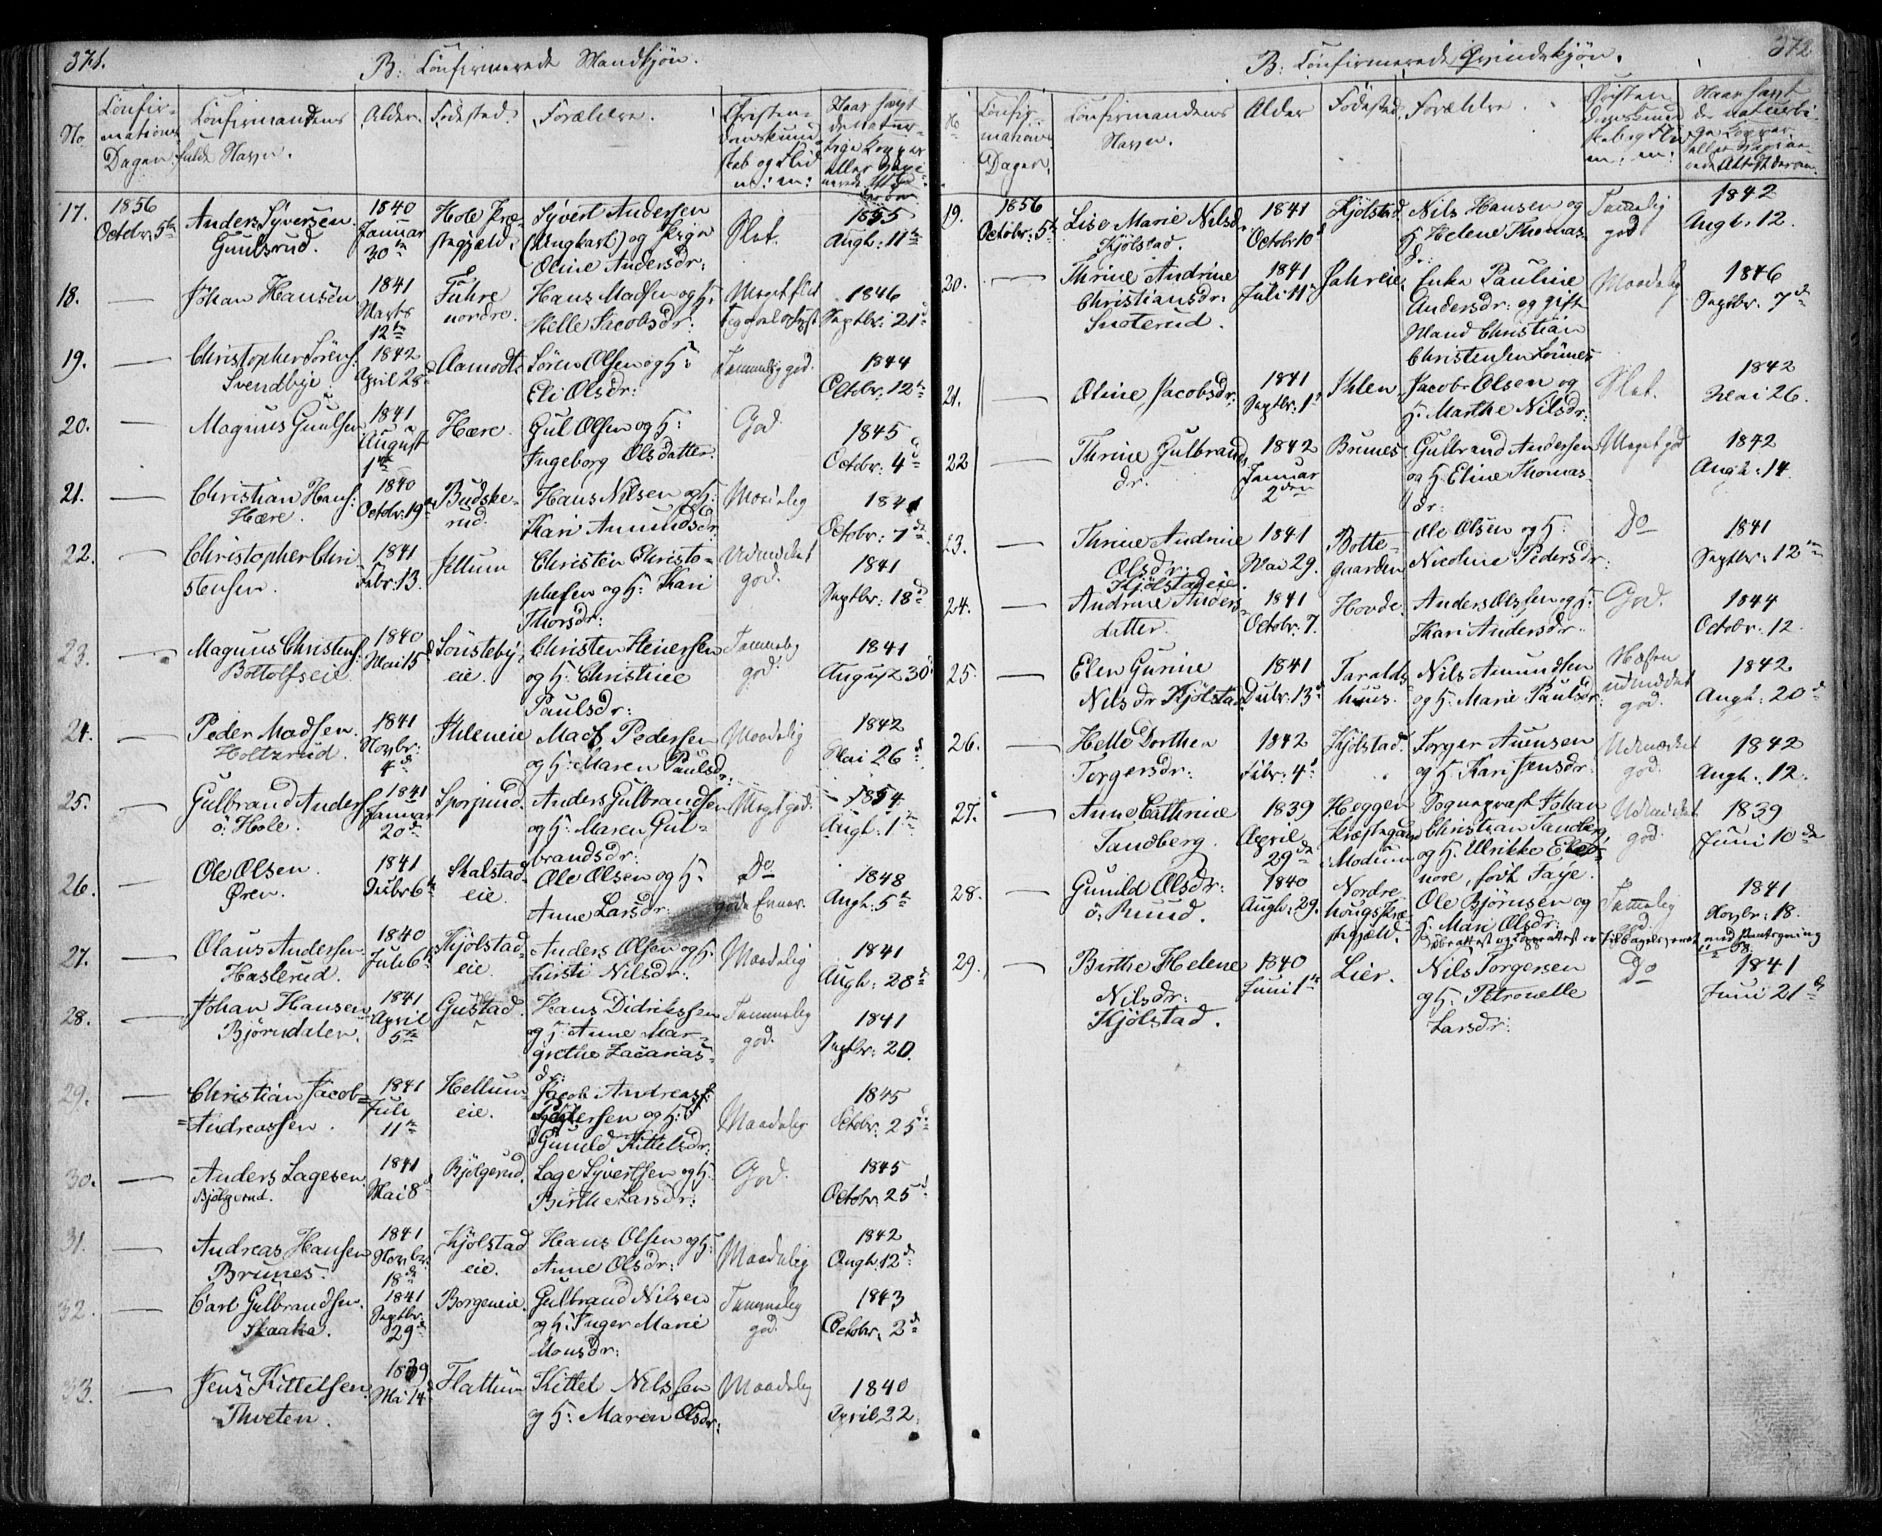 371.
B. Confirmerede Mandkjøn.
No
Confir-
mations
Dagen.
Confirmandens
fulde Navn.
Alder.
Fødested.
Forældre.
Christen-
domskund
skab og Flid
m: m:
Naar havt
de natur-
lige Kopper
eller Vacci-
nerede
17. 1856 Octobr: 5te
Anders Syversen
Gunlsrud.
1840
Januar
30te
Hole Præ-
stegjæld.
Syvert Andersen
(Ungkarl) og Pige
Oline Andersdr:
Slet.
1855
Augt: 11te
18. —
Johan Hansen
1841
Marts
12te
Fuhre
nordre.
Hans Madsen og H:
Helle Jacobsdr:
Meget flid
1846
Septbr: 21d
19. —
Christopher Sörens:
Svendbye.
1842
April 28d
Aamodt
Sören Olsen og H:
Eli Olsdr:
Temmelig god.
1844
Octobr. 12te
20. —
Magnus Guulsen
1841
August
1ste
Hære.
Gul Olsen og H:
Ingeborg Olsdatter.
God
1845
Octbr: 4d
21. —
Christian Hans:
Hære.
1840
Octobr: 19
Budske-
rud.
Hans Nilsen og H:
Kari Amundsdr
Maadelig
1841
Octobr: 7d
22. —
Christopher Chri
stensen.
1841
Febr: 13.
Jellum
Christen Christo-
phersen og H: Kari
Thorsdr:
Udmærket
god.
1841
Septbr: 18d
23. —
Magnus Christens:
Bottolfseie.
1840
Mai 15d
Sönsteby
eie.
Christen Steners​en
og H: Christine
Paulsdr:
Temmelig
god
1841
August 30
24. —
Peder Madsen.
Holtzrud.
1841
Novbr:
4d
Ihleneie
Mads Pedersen
og H: Maren Paulsdr:
Maadelig
1842
Mai 26d
25. —
Gulbrand Anders
ö: Hole.
1841
Januar
20d
Anders Gulbrandsen
og H: Maren Gul-
brandsdr:
Meget god.
1854
Augt: 1
26. —
Ole Olsen.
Øren.
1841
Dubr 6te
Skalstad-
eie.
Ole Olsen og H:
Anne Larsdr:
Do
gode Evner.
1848
Augt: 5te
27. —
Olaus Andersen
Haslerud.
1840
Juli 6te
Kjölstad-
eie.
Anders Olsen og H:
Kirsti Nilsdr.
Maadelig
1841
Augt: 28d
28. —
Johan Hansen
Björndalen.
1841
April
5te
Gustad.
Hans Didriksen
og H: Anne Mar-
grethe Zacarias-
dr:
Temmelig
god.
1841
Septbr: 20.
29. —
Christian Jacob=
=Andreassen.
1841
Juli
11te
Hellum-
eie.
Jacob Andreas:
Pedersen og H:
Gunild Kittelsdr:
Maadelig
1845
Octobr: 25d
30. —
Anders Lagesen
Bjölgerud.
1841
Mai 8d
Bjölgerud.
Lage Syvertsen og H:
Birthe Larsdr:
God.
1845
Octobr. 25d
31. —
Andreas Hansen
Brunes.
1841
Novbr:
18de
Kjölstad
eie.
Hans Olsen og H:
Anne Olsdr:
Maadelig
1842
Augt. 12d
32. —
Carl Gulbrandsen.
Skaaka.
1841
Septbr.
29d
Borgeneie.
Gulbrand Nilsen
og H: Inger Marie
Monsdr:
Temmelig
god.
1843
Octobr. 2d
33. —
Jens Kittelsen.
Thveten.
1839
Mai 14
Flattum
Kittel Nilssen
og H: Maren Olsdr:
Maadelig
1840
April 22.
372
B. Confirmerede Qvindekjøn.
No
Confir-
mations
Dagen.
Confirmandens
Navn.
Alder
Fødested
Forældre
Christen
domskund
skab og Flid
m: m:
Naar havt
de naturli
ge Kopper
19. 1856 Octobr: 5te
Lise Marie Nilsd
Kjölstad.
1841
Octobr 10d
Kjölstad
Nils Hansen og
H. Helene Thomas-
dr:
Tamelig
god
1842
Augt. 12.
20. —
Thrine Andrine
Christiansdr:
Snoterud.
1841
Juli 11te
Enke Pauline
Andersdr: og gift
Mand Christian
Christensen
Maadelig
1846
Septbr. 7d
21. —
Oline Jacobsdr:
1841
Septbr. 1d
Ihlen
Jacob Olsen og
H. Marthe Nilsdr:
Slet.
1842
Mai 26.
22 —
Thrine Gulbrands
dr.
1842
Januar
2den
Brunes
Gulbrand Andersen
og H. Eline Thomas-
dr:
Meget god
1842
Augt: 14.
23. —
Thrine Andrine
Olsdr:
Kjölstadeie
1841
Mai 29.
Botte-
gaarden
Ole Olsen og H:
Nicoline Pedersdr:
Do
1841
Septbr: 12te
24. —
Andrine Anders
datter.
1841
Octobr. 7.
Hovde.
Anders Olssen og H:
Kari Andersdr:
God.
1844
Octobr: 12.
25. —
Elen Gurine
Nilsdr Kjölstad
1841
Dubr: 13d
Taralds
huus.
Nils Amundsen
og H: Marie Paulsdr:
Næsten
udmærket
god.
1842
Augt: 20d
26. —
Helle Dorthea
Torgersdr:
1842
Febr: 4d
Kjölstad.
Torger Auensen
og H: Kari Jensdr:
Udmærket
god.
1842
Augt: 12.
27. —
Anne Cathrine
Tandberg.
1839
April
29de
Heggen
Præstegjæld
i Modum
Sognepræst Johan
Christian Tandberg
og H: Ulrikke Eleo-
nore, født Faye.
Udmærket
god.
1839
Juni 10de
28. —
Gunild Olsdr:
ö: Ruud.
1840
Augt: 29.
Nordre
hougs Præ
stegjeld.
Ole Björnsen og
H. Mari Olsdr:
Tamelig
God.
1841
Novbr: 18.
29. —
Birthe Helene
Nilsdr:
Kjölstad.
1840
Juni 1te
Lier.
Nils Torgersen
og H: Petronelle
Larsdr:
Do
1841
Juni 21d